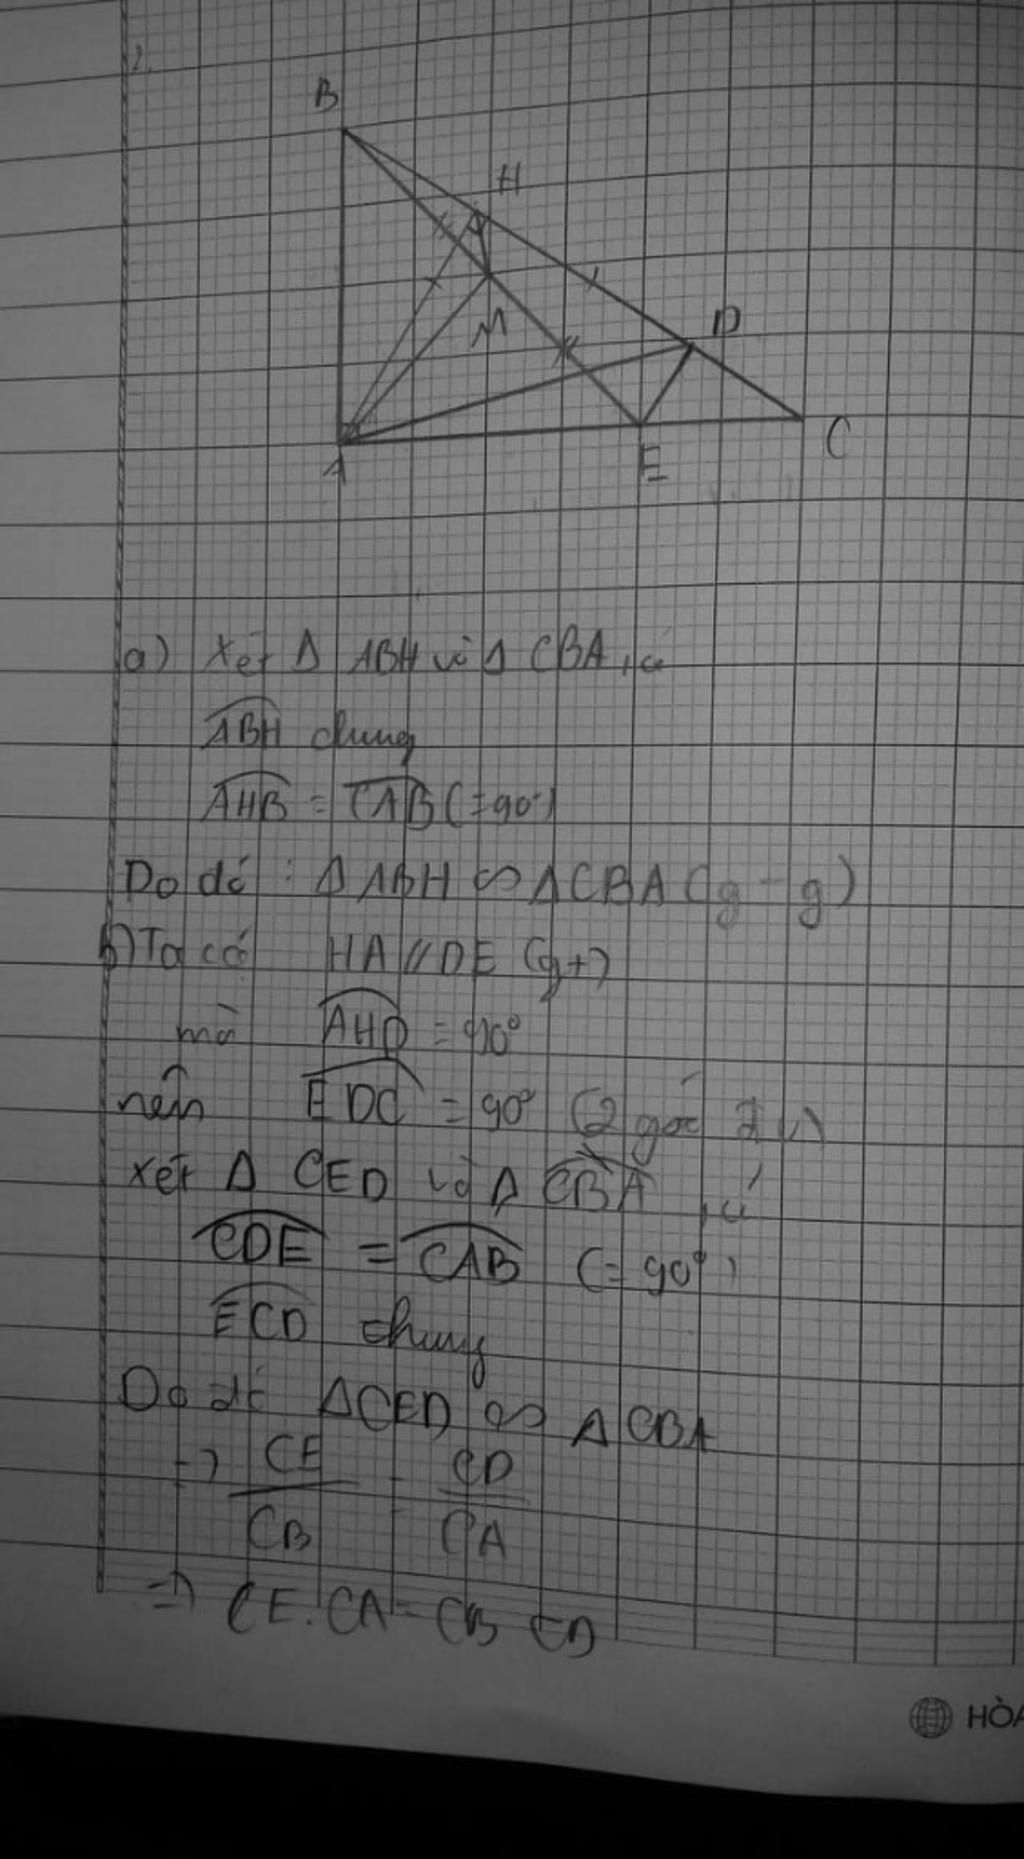 2.
B
H
M
D
A
E
C
a) Xét Δ ABH và Δ CBA, có
ABH chung
AHB = CAB (=90°)
Do đó : Δ ABH ∽ Δ CBA (g-g)
b) Ta có HA // DE (gt)
mà AHD = 90°
nên EDC = 90° (2 góc
Xét Δ CED và Δ CBA, có
CDE = CAB (=90°)
ECD chung
Do đó ΔCED ∽ ΔCBA
=> CE/CB = CD/CA
=> CE.CA = CB CD
HÒA